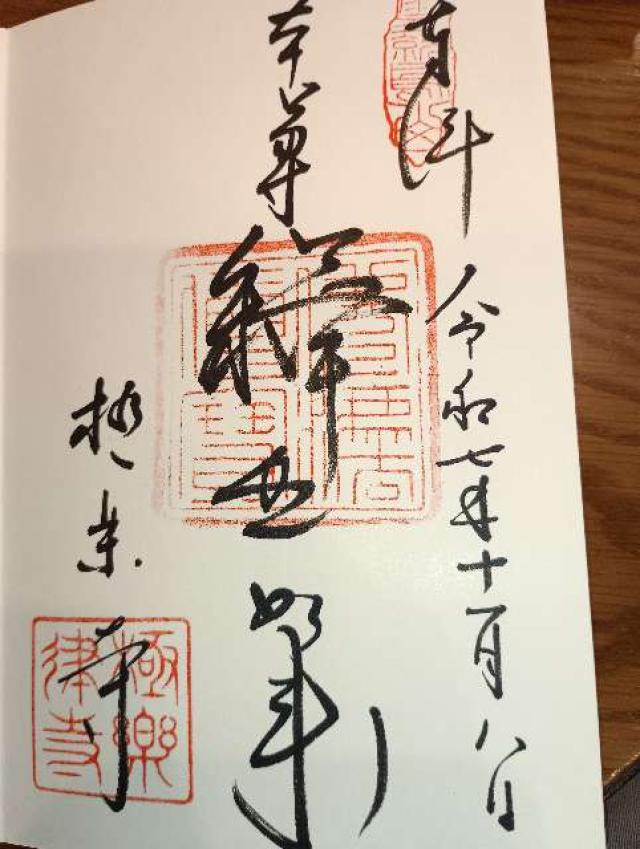 奉拝
令和七年十一月八日
本尊
釋迦如来
極楽寺
極樂
律寺